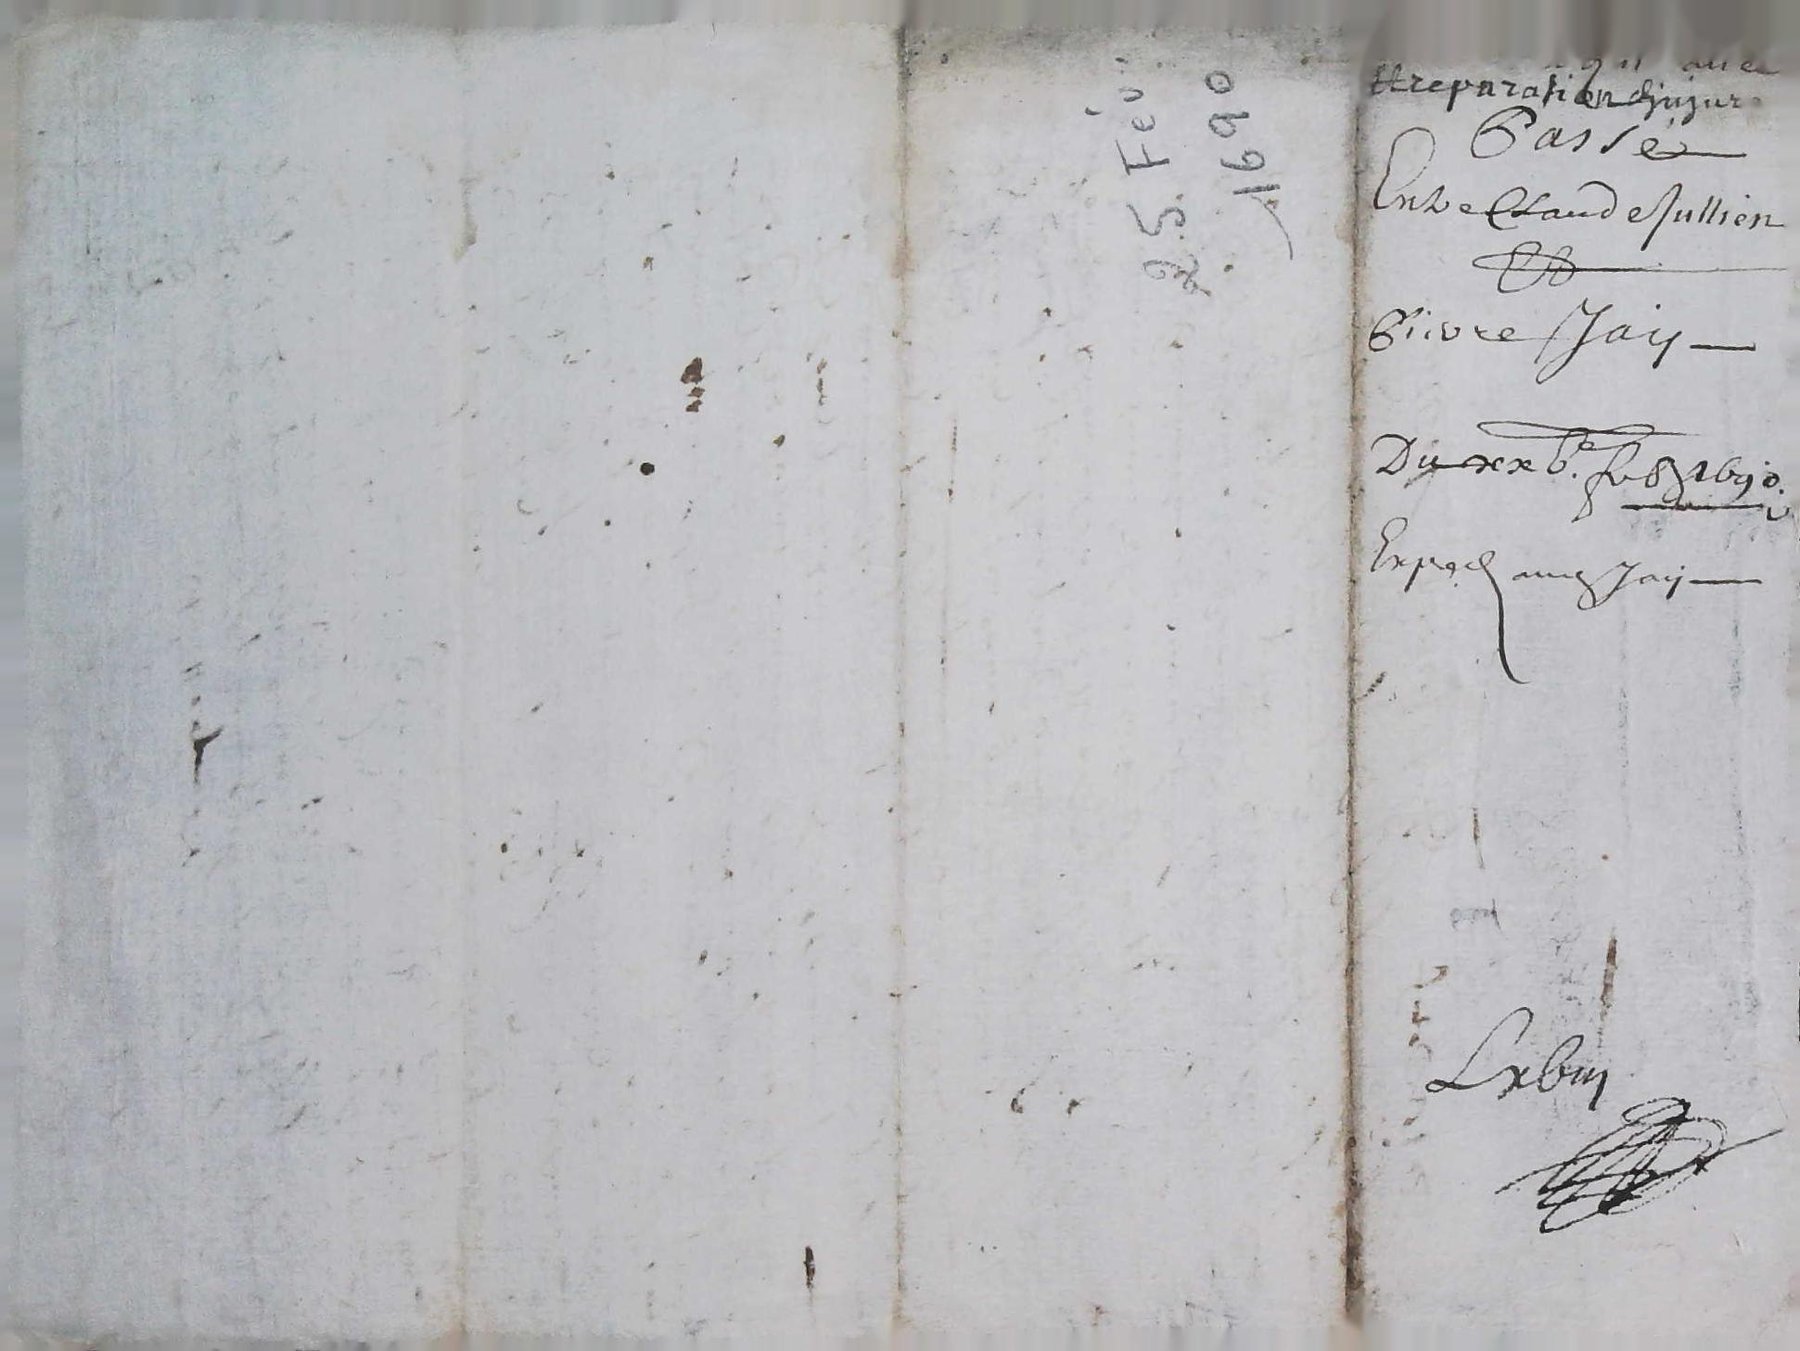 25 Fev
1690
Et reparation dinjure
Passé
Entre Claude Jullien
Et
Pierre Jaÿ
Du xxv.e feb 1690.
Exped aud Jaÿ